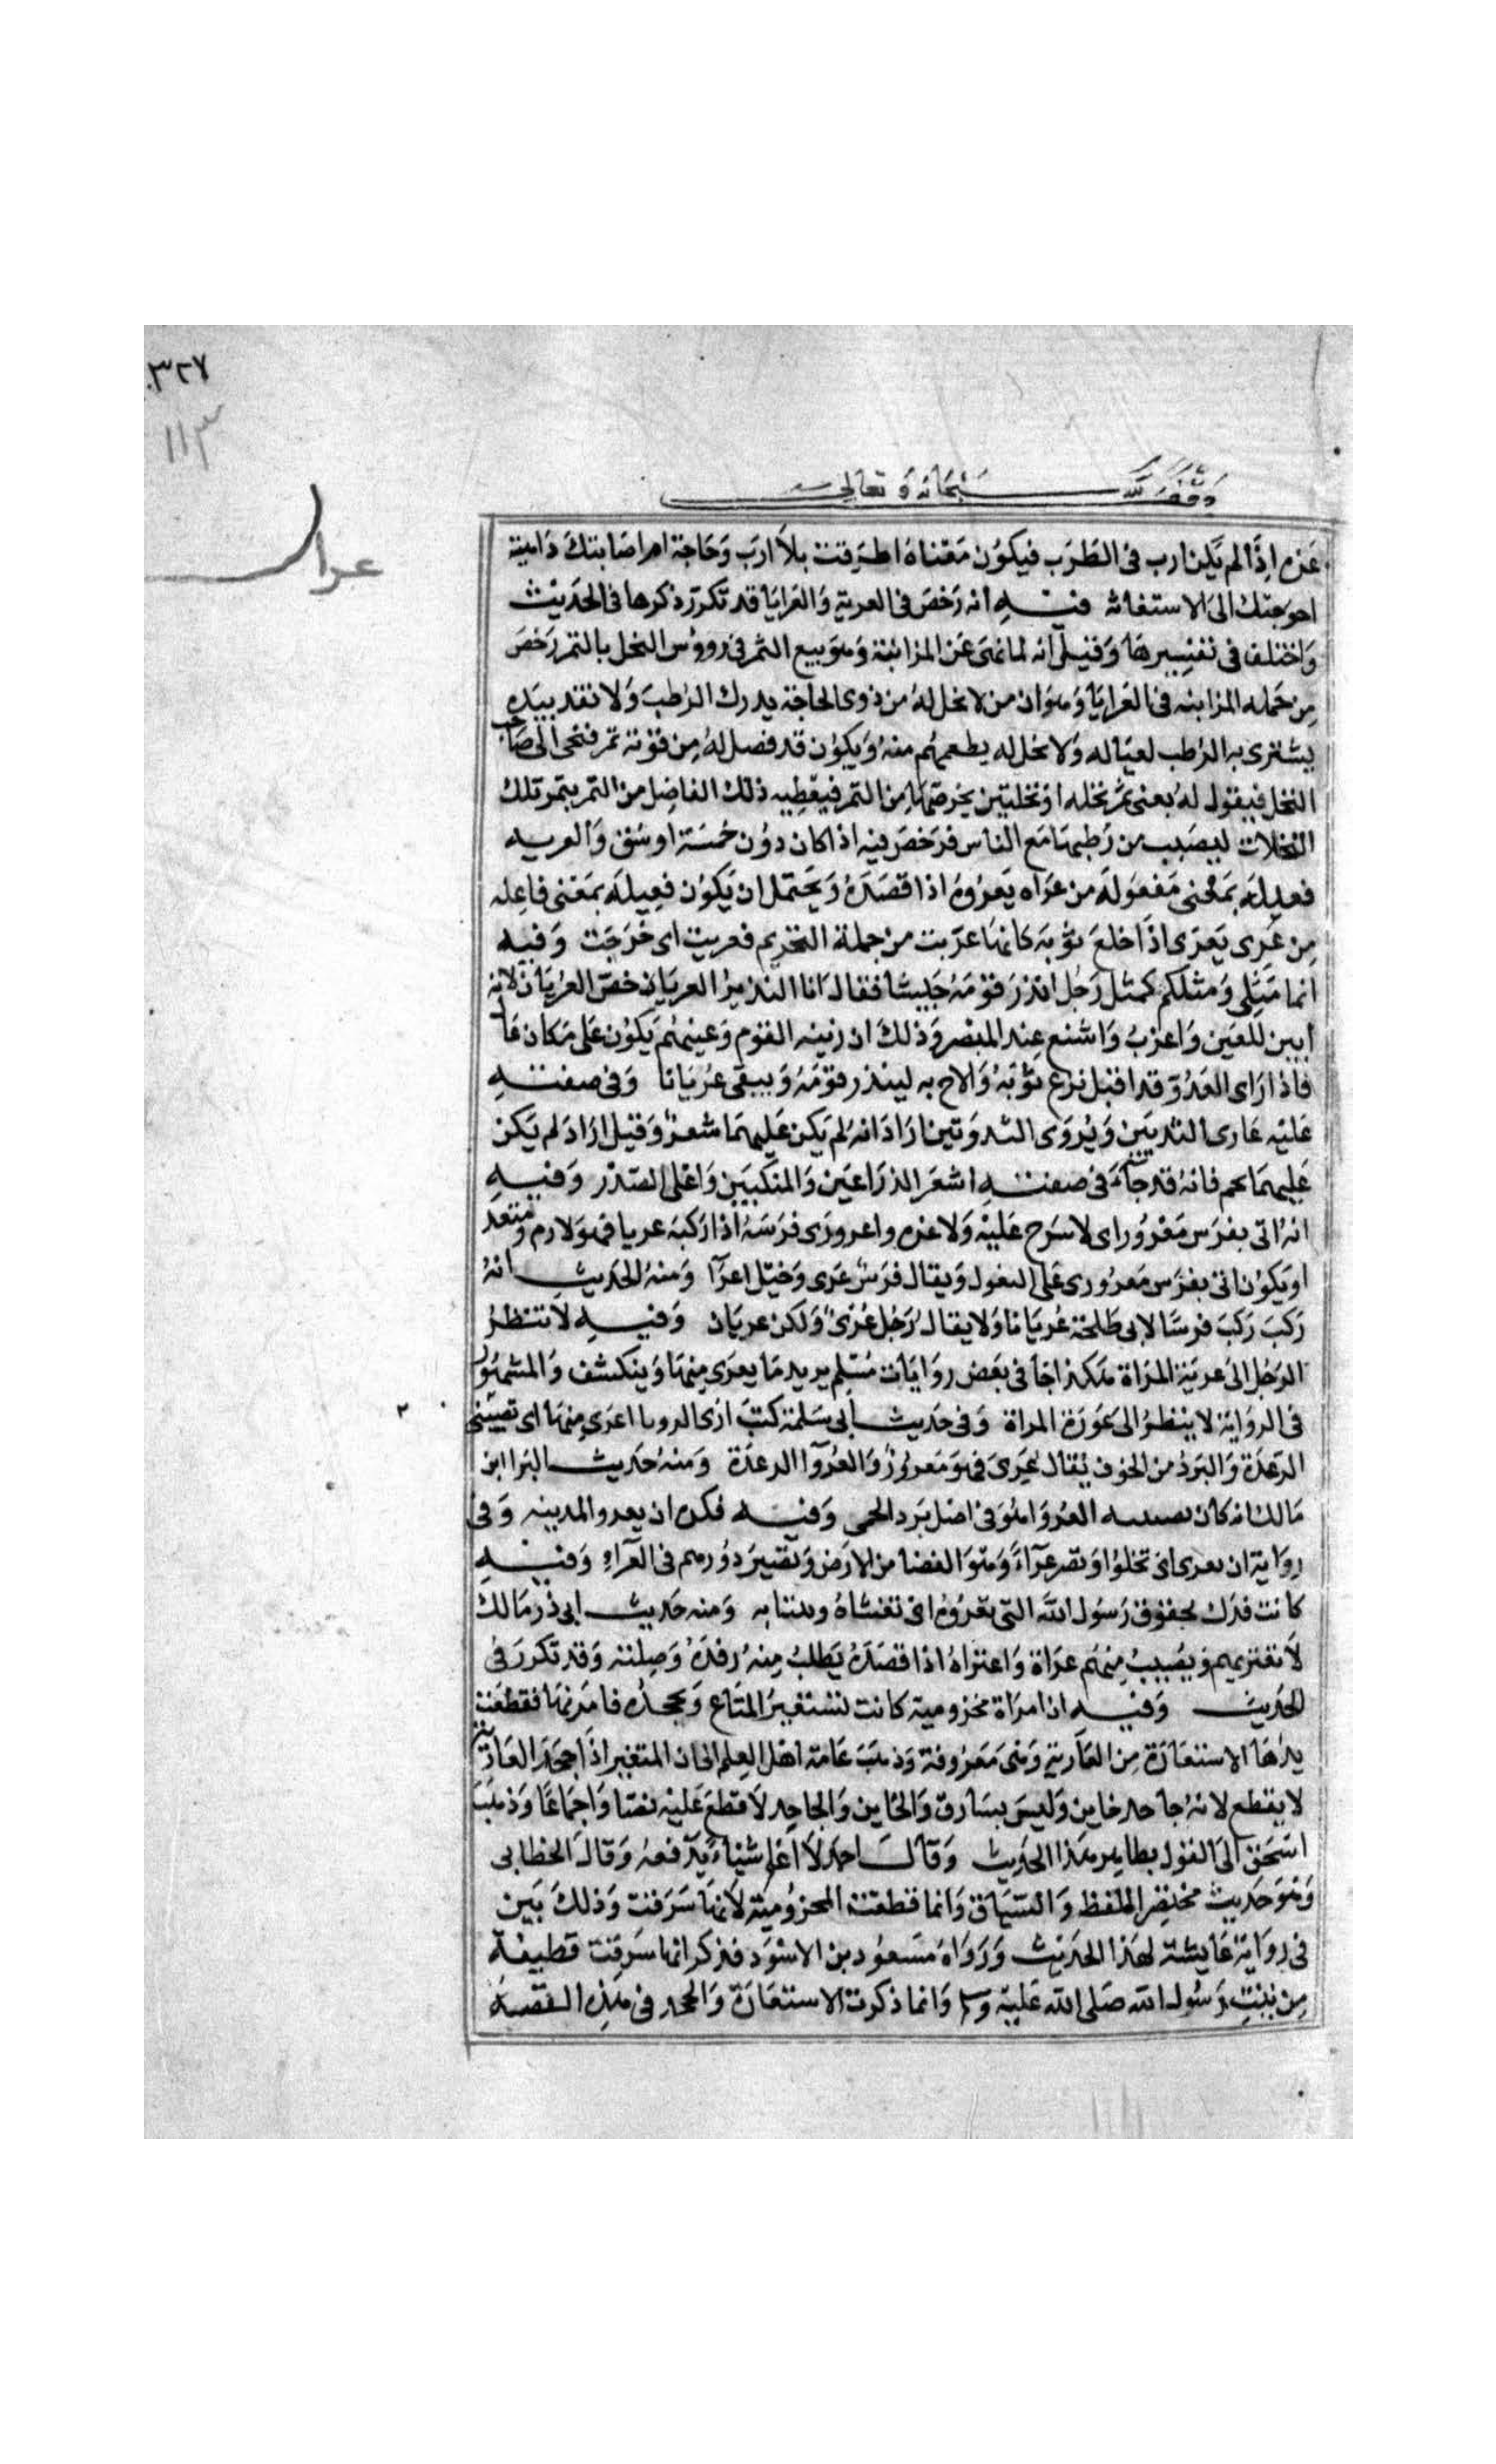 ٣٢٧
١١٣
وقف لله سبحانه وتعالى
عرا
غره اذا لم يكن ارب في الطرب فيكون معناه اطرقت بلا ارب وحاجة ام اصابتك داهية
احوجتك الى الاستغاثه فيه انه رخص في العرية والعرايا قد تكرر ذكرها في الحديث
واختلف في تفسيرها وقيل انه لما نهى عن المزابنة وهو بيع الثمر في رووس النخل بالتمر رخص
من جمله المزابنه في العرايا وهو ان من لا نخل له من ذوى الحاجة يدرك الرطب ولا نقد بيده
يشترى به الرطب لعياله ولا نخل له يطعمهم منه ويكون قد فضل له من قوته تمر فيجى الى صاحب
النخل فيقول له بعنى ثمر نخله او نخلتين بخرصها من التمر فيعطيه ذلك الفاضل من التمر بتمر تلك
النخلات ليصيب من رطبها مع الناس فرخص فيه اذا كان دون خمسة اوسق والعريه
فعيله بمعنى مفعوله من عراه يعروه اذا قصده ويحتمل ان يكون فعيله بمعنى فاعله
من عرى يعرى اذا خلع ثوبه كانها عريت من جملة التحريم فعريت اى خرجت وفيه
انما مثلى ومثلكم كمثل رجل انذر قومه جيشا فقال انا النذير العريان خص العريان لانه
ابين للعين واغرب واشنع عند المبصر وذلك ان ربيه القوم وعينهم يكون على مكان عا
فاذا راى العدو قد اقبل نزع ثوبه والاح به لينذر قومه ويبقى عريانا وفى صفته
عليه عارى الثديين ويروى الثدوتين اراد انه لم يكن عليهما شعر وقيل اراد لم يكن
عليهما لحم فانه قد جاء فى صفته اشعر الذراعين والمنكبين واعلى الصدر وفيه
انه اتى بفرس معرور اى لا سرج عليه ولا غره واعرورى فرسه اذا ركبه عريا فهو لازم ومتعد
او يكون اتى بفرس معرورى على المفعول ويقال فرس عرى وخيل اعرآ ومنه الحديث انه
ركب ركب فرسا لابى طلحة عريانا ولا يقال رجل عرى ولكن عريان وفيه لا تنظر
الرجل الى عرية المراة هكذا جا فى بعض روايات مسلم يريد ما يعرى منها وينكشف والمشهور
فى الرواية لا ينظر الى عورة المراة وفى حديث ابى سلمة كنت ارى الرويا اعرى منها اى تصيبنى
الرعدة والبرد من الخوف يقال عرى فهو معرور والعروآ الرعدة ومنه حديث البرا ابن
مالك انه كان يصيبه العروا وهو فى اصل برد الحمى وفيه فكره ان يعروا المدينه وفى
رواية ان تعرى اى تخلوا وتصير عرآء وهو الفضا من الارض وتصير دورهم فى العرآء وفيه
كانت فدك لحقوق رسول الله التى تعروه اى تغشاه وتنتابه ومنه حديث ابى ذر مالك
لا تعتريهم وتصيب منهم عراة واعتراه اذا قصده يطلب منه رفده وصلته وقد تكرر فى
الحديث وفيه ان امراة مخزومية كانت تستعير المتاع وتجحده فامر بها فقطعت
يدها الاستعارة من العارية وهى معروفة وذهب عامة اهل العلم الى ان المستعير اذا جحد العارية
لا يقطع لانه جاحد خاين وليس بسارق والخاين والجاحد لا قطع عليه نصا واجماعا وذهب
اسحق الى القول بظاهر هذا الحديث وقال احمد لا اعلم شيئا يدفعه وقال الخطابى
وهو حديث مختصر اللفظ والسياق وانما قطعت المخزومية لانها سرقت وذلك بين
فى رواية عايشة لهذا الحديث ورواه مسعود بن الاسود فذكر انها سرقت قطيفة
من بيت رسول الله صلى الله عليه وسلم وانما ذكرت الاستعارة والجحد فى هذه القصه